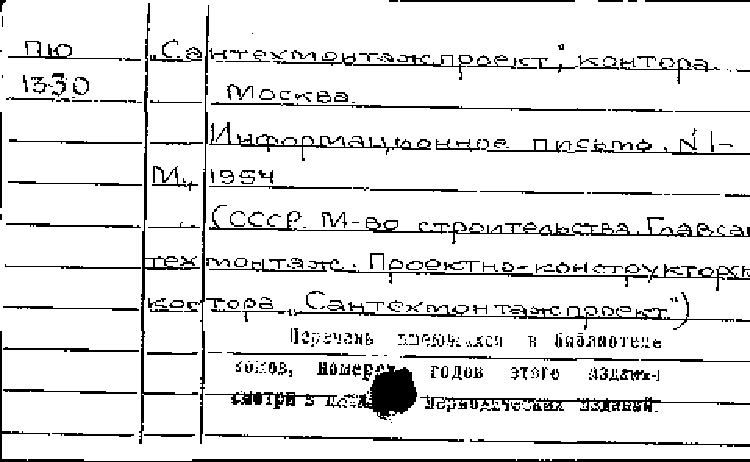 ПЮ „Сантехмонтажпроект", контора.
1330 Москва.
Информационное письмо. N1-
М., 1954
(СССР. М-во строительства. Главсан
техмонтаж. Проектно-конструкторск
контора „Сантехмонтажпроект")
Перечень имеющихся в библиотеке
томов, номеров, годов этого издани-
смотри в периодических изданий.